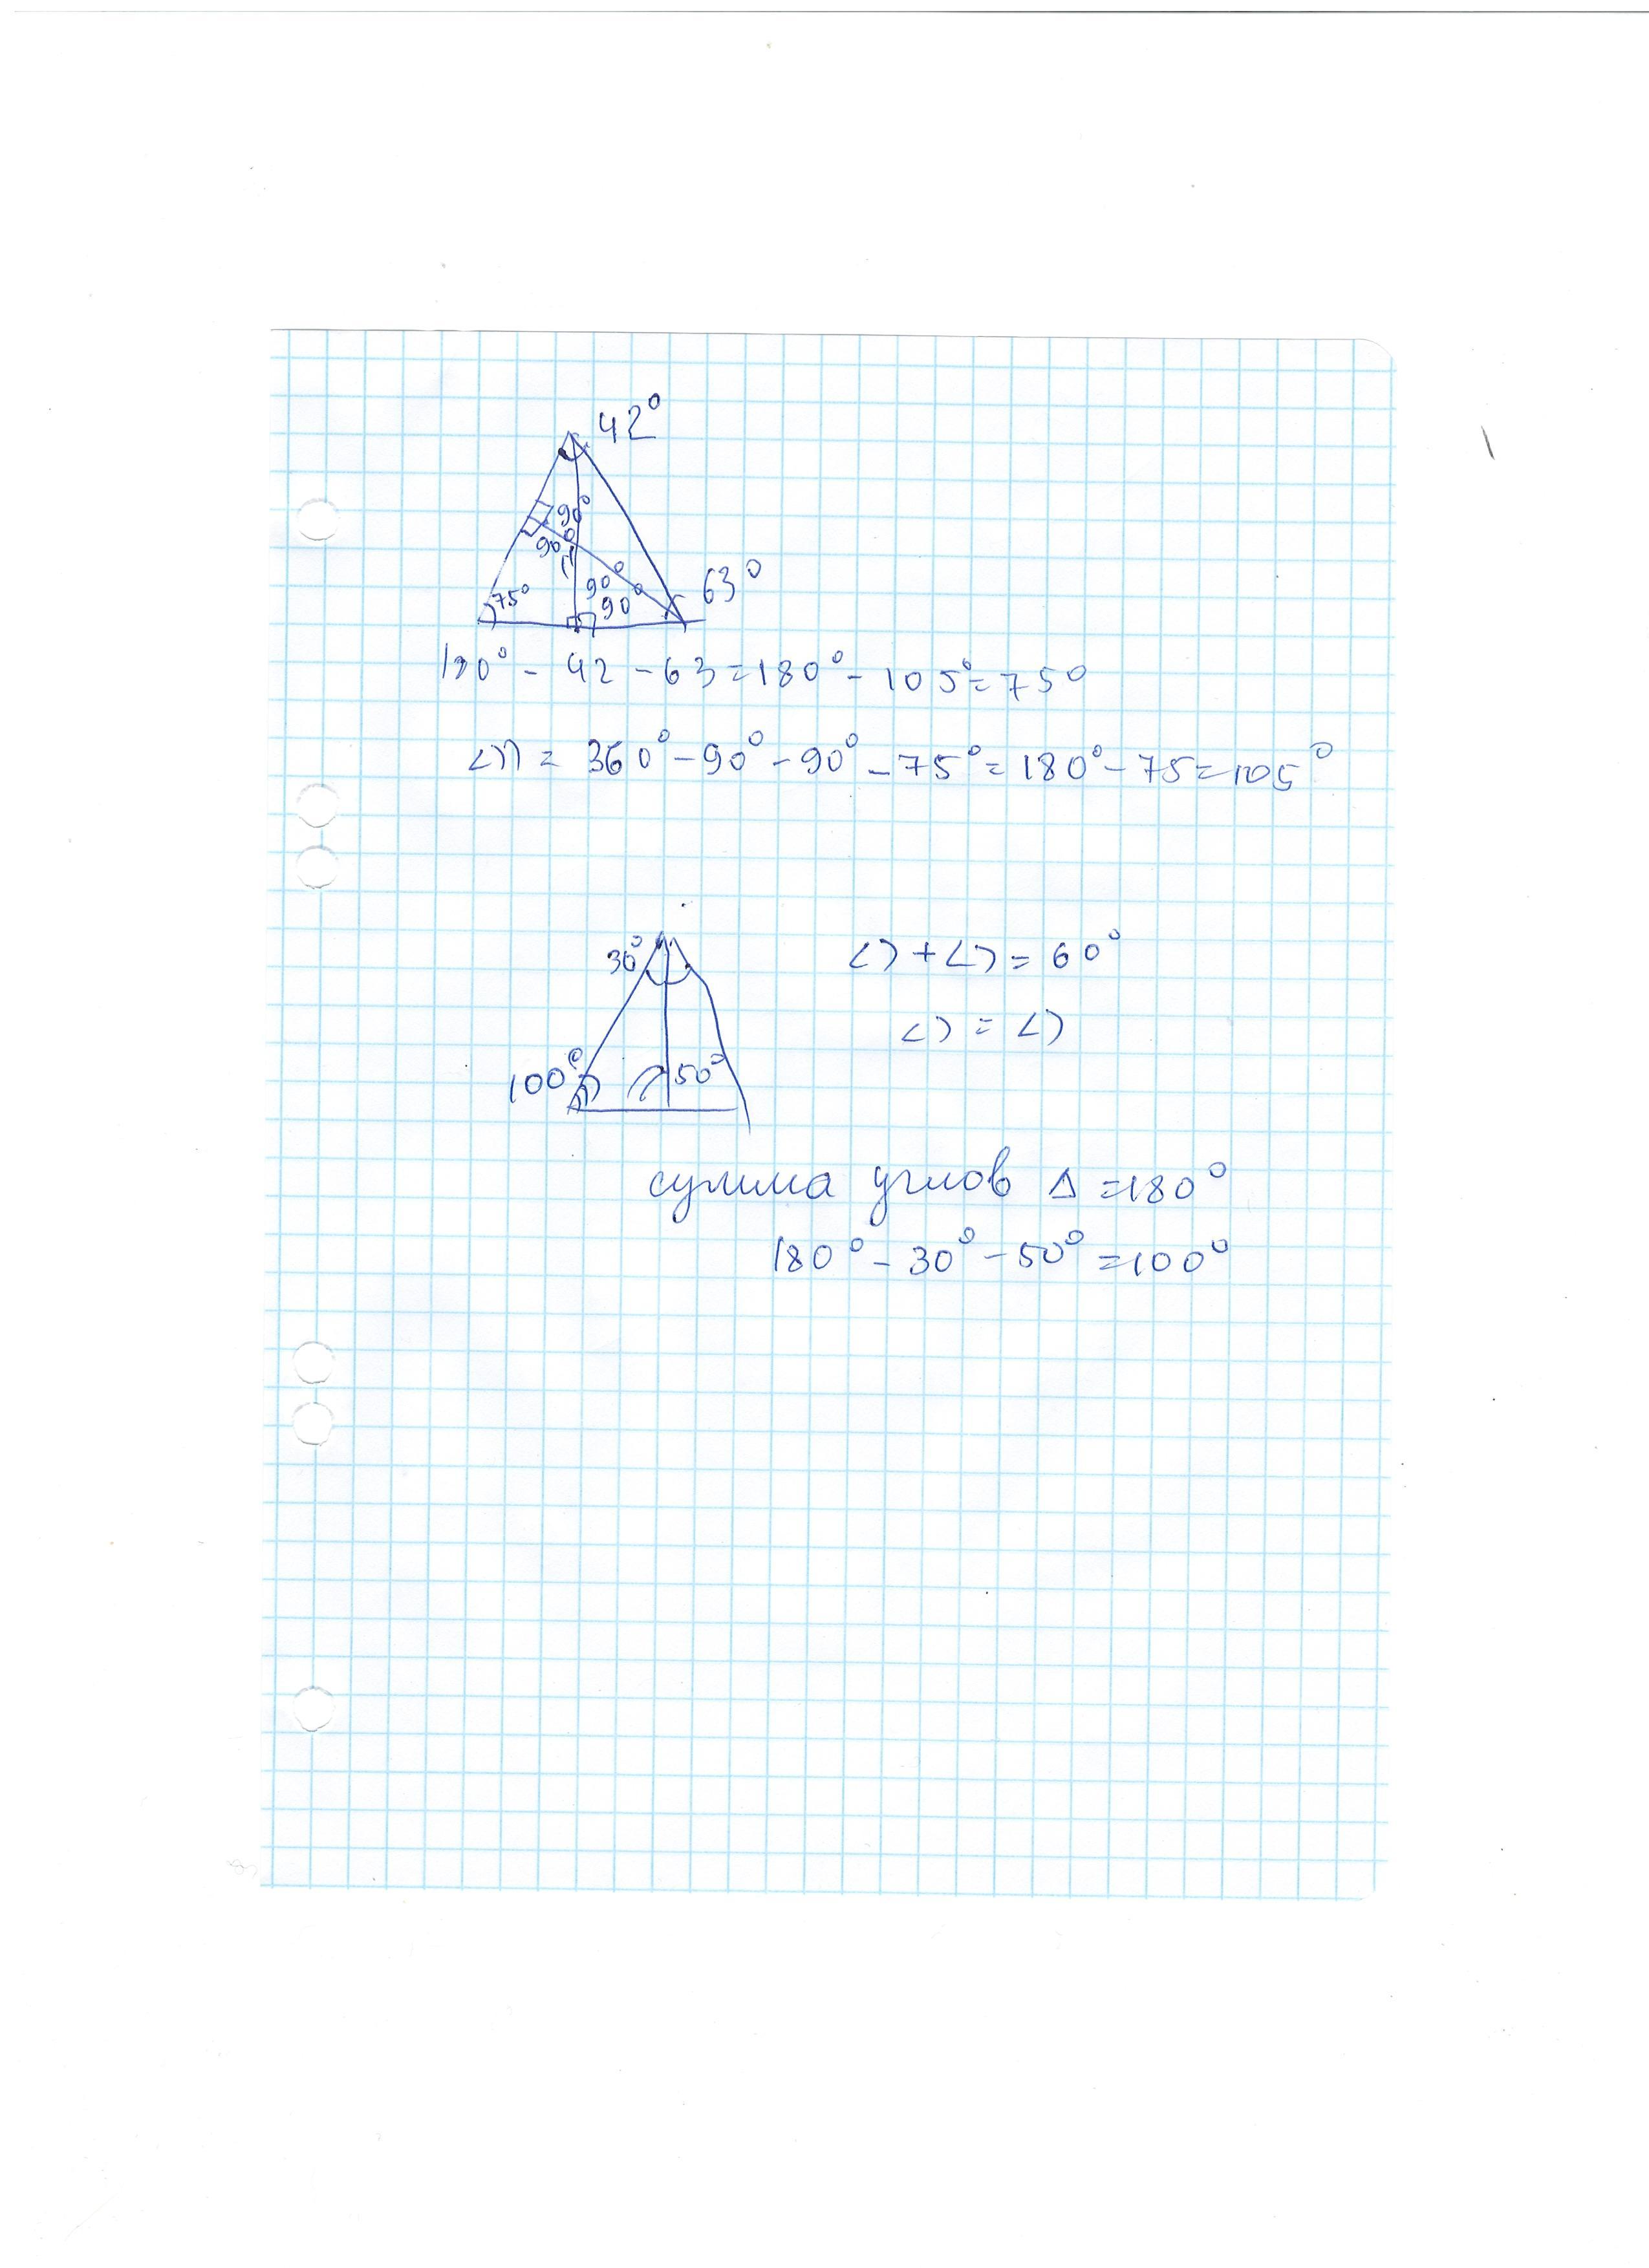 42°
90°
90°
75°
90°
90°
63°
180° - 42 - 63 = 180° - 105° = 75°
= 360° - 90° - 90° - 75° = 180° - 75 = 105°
30°
100°
50°
∠) + ∠) = 60°
∠) = ∠)
сумма углов Δ = 180°
180° - 30° - 50° = 100°